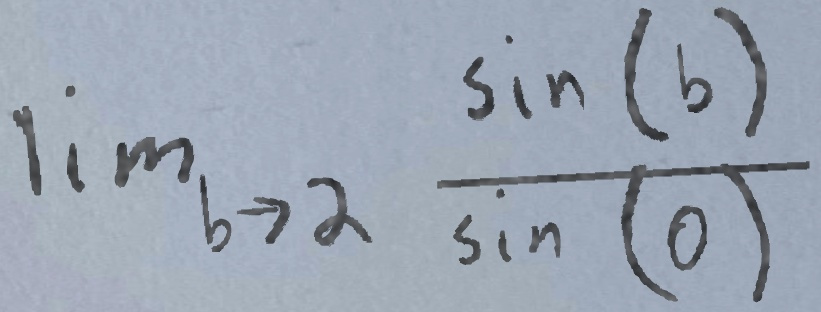 lim_{b→2} \frac{sin(b)}{sin(0)}